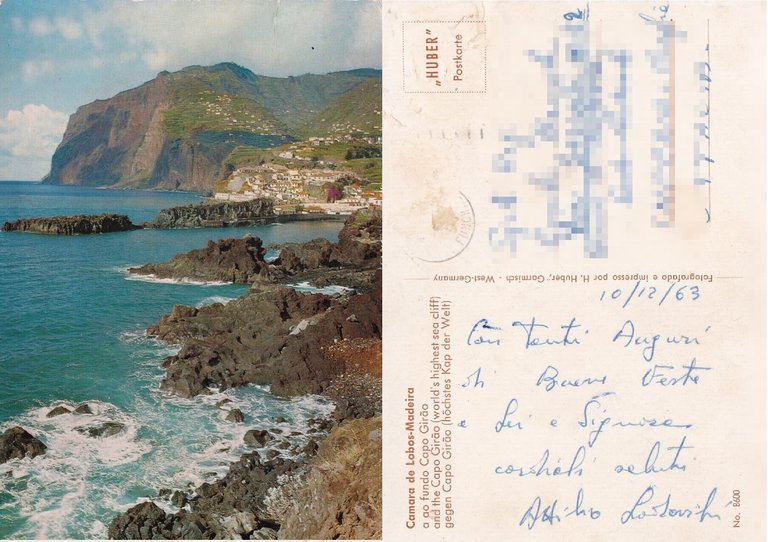 „HUBER"
Postkarte
FUNCHAL
Fotografado e impresso por H. Huber, Garmisch - West-Germany
Camara de Lobos-Madeira
a ao fundo Capo Girão
and the Capo Girão (world's highest sea cliff)
gegen Capo Girão (höchstes Kap der Welt)
10/12/63
Con Tanti Auguri
di Buone Feste
a Lei e Signora
cordiali saluti
Attilio
No. 8600